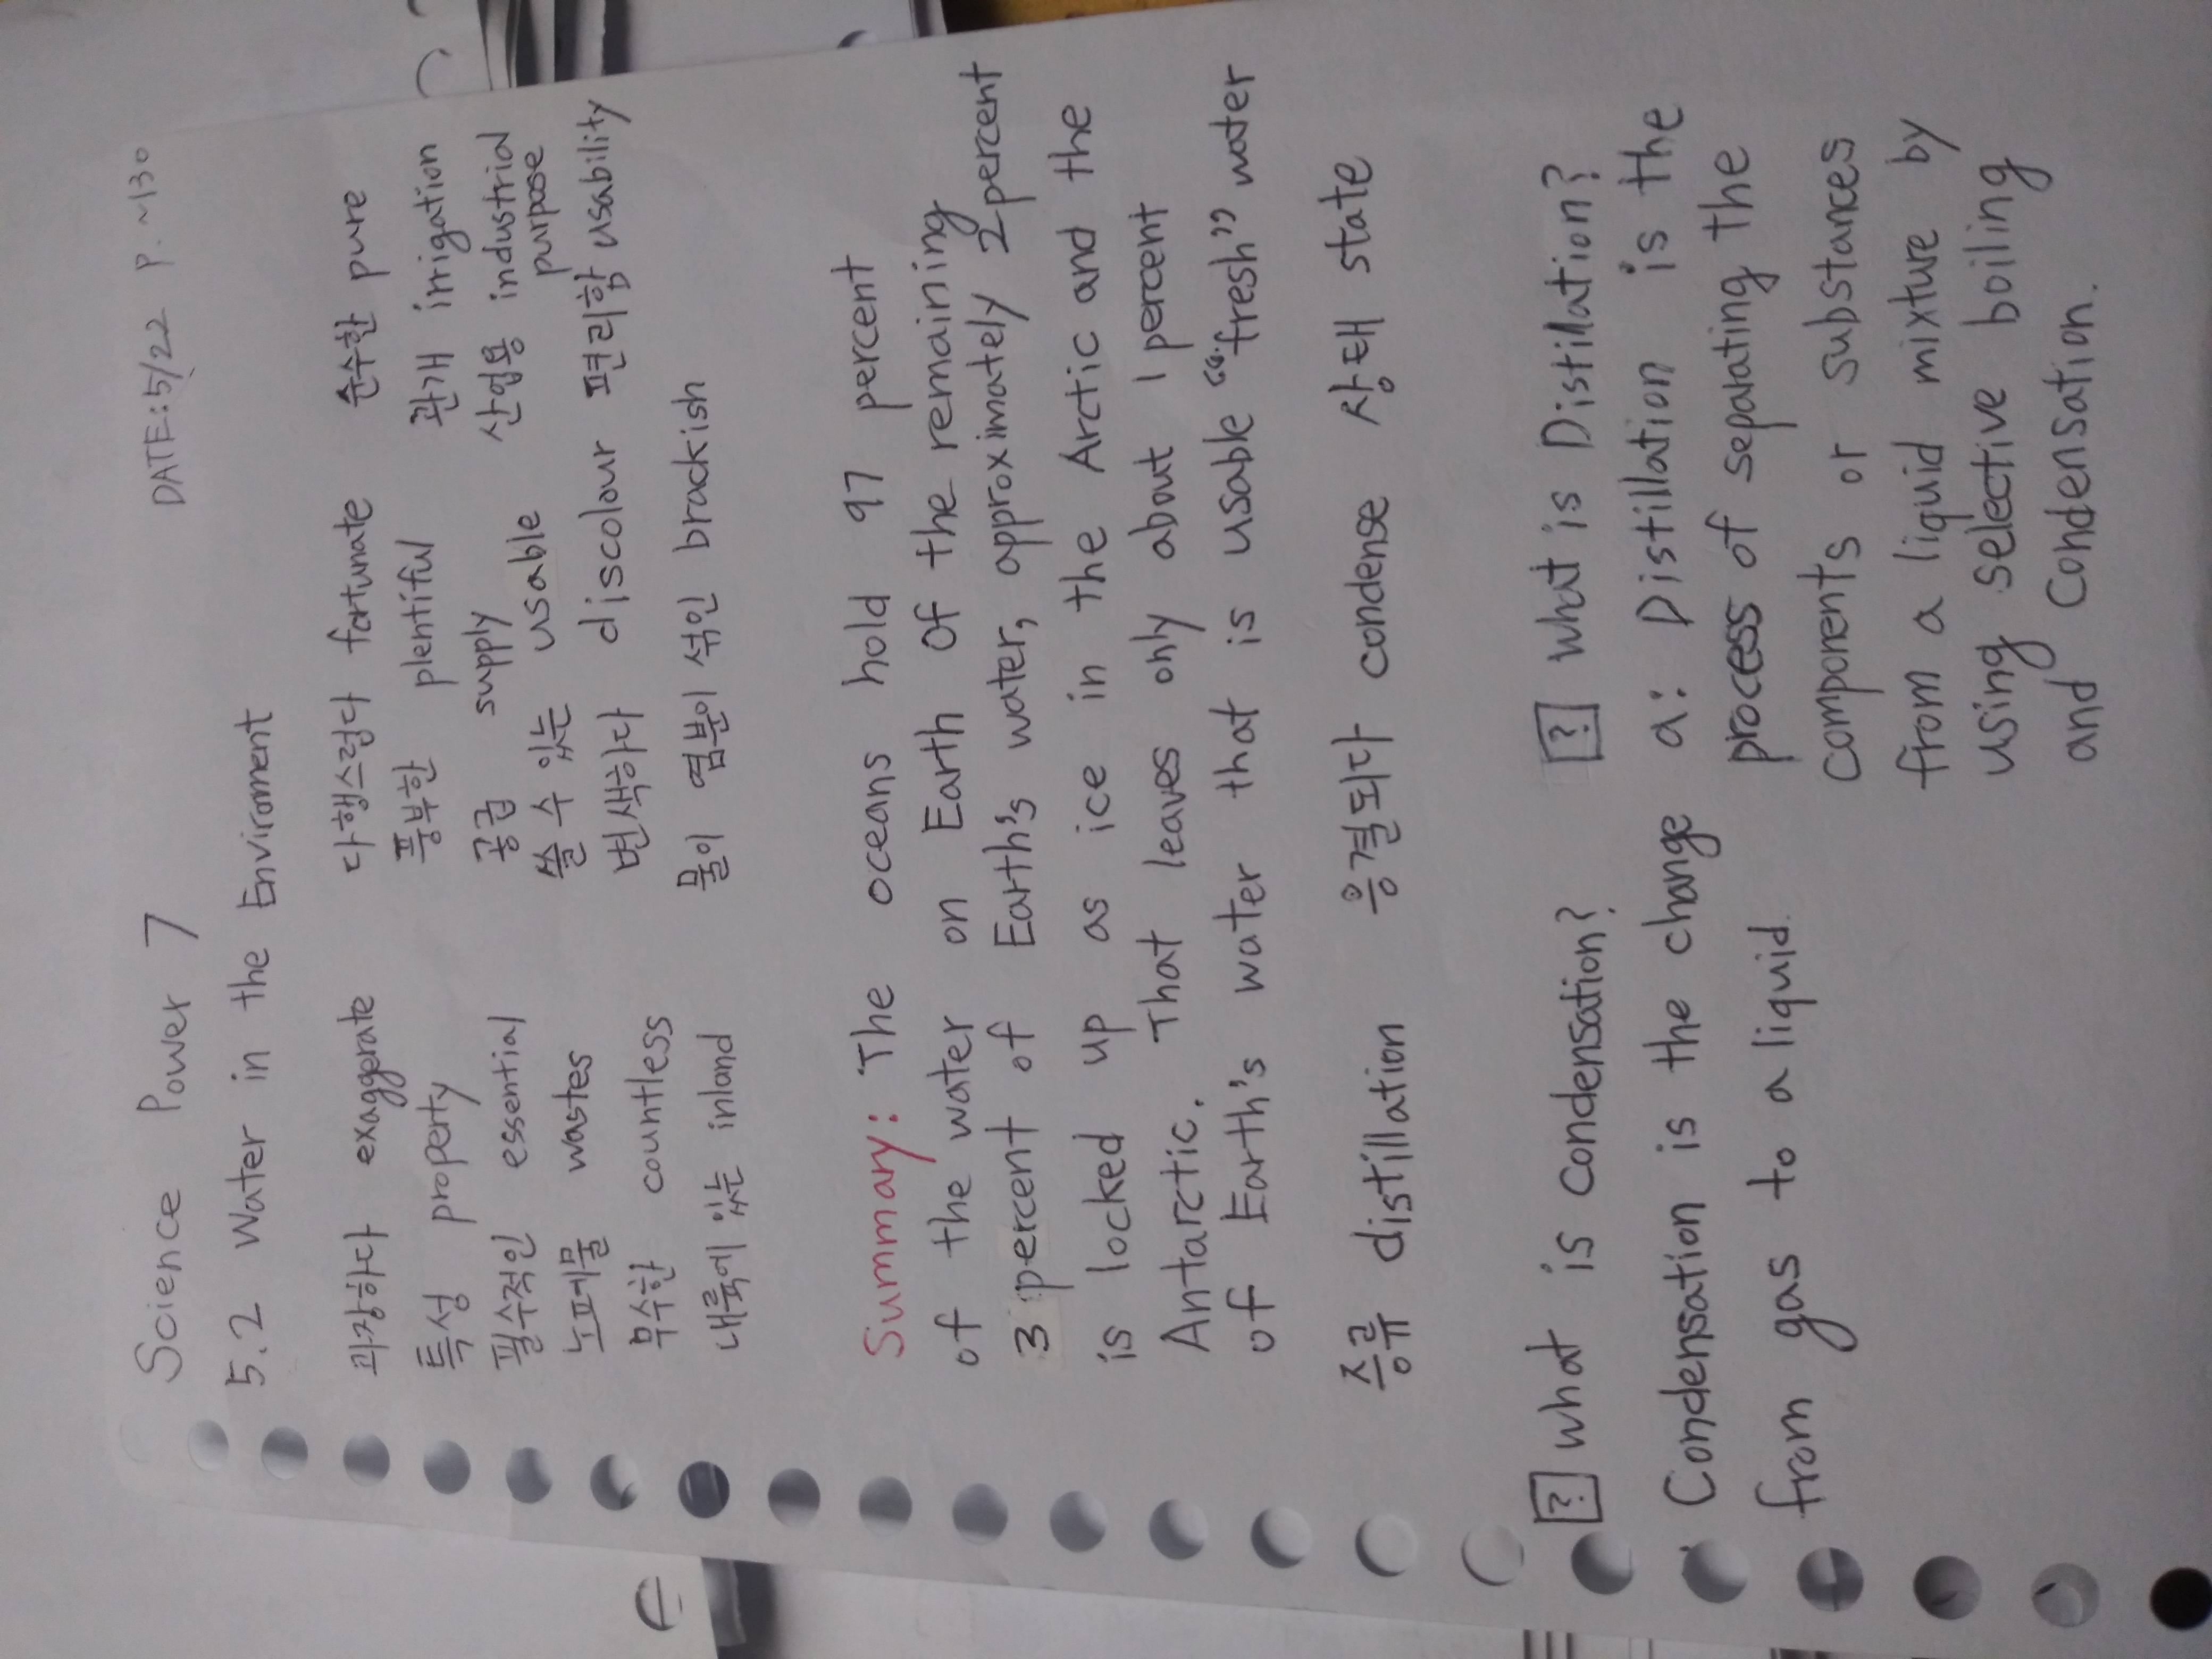 Science Power 7 DATE: 5/22 P. ~130
5.2 Water in the Enviroment
과장하다 exaggerate 다행스럽다 fortunate 순수한 pure
특성 property 풍부한 plentiful 관개 irrigation
필수적인 essential 공급 supply 산업용 industrial purpose
노폐물 wastes 쓸 수 있는 usable 편리함 usability
무수한 countless 변색하다 discolour
내륙에 있는 inland 물이 염분이 섞인 brackish
Summary: The oceans hold 97 percent
of the water on Earth Of the remaining
3 percent of Earth's water, approximately 2 percent
is locked up as ice in the Arctic and the
Antarctic. That leaves only about 1 percent
of Earth's water that is usable "fresh" water
증류 distillation 응결되다 condense 상태 state
? what is condensation?
Condensation is the change
from gas to a liquid.
? what is Distillation?
a: Distillation is the
process of separating the
components or substances
from a liquid mixture by
using selective boiling
and condensation.